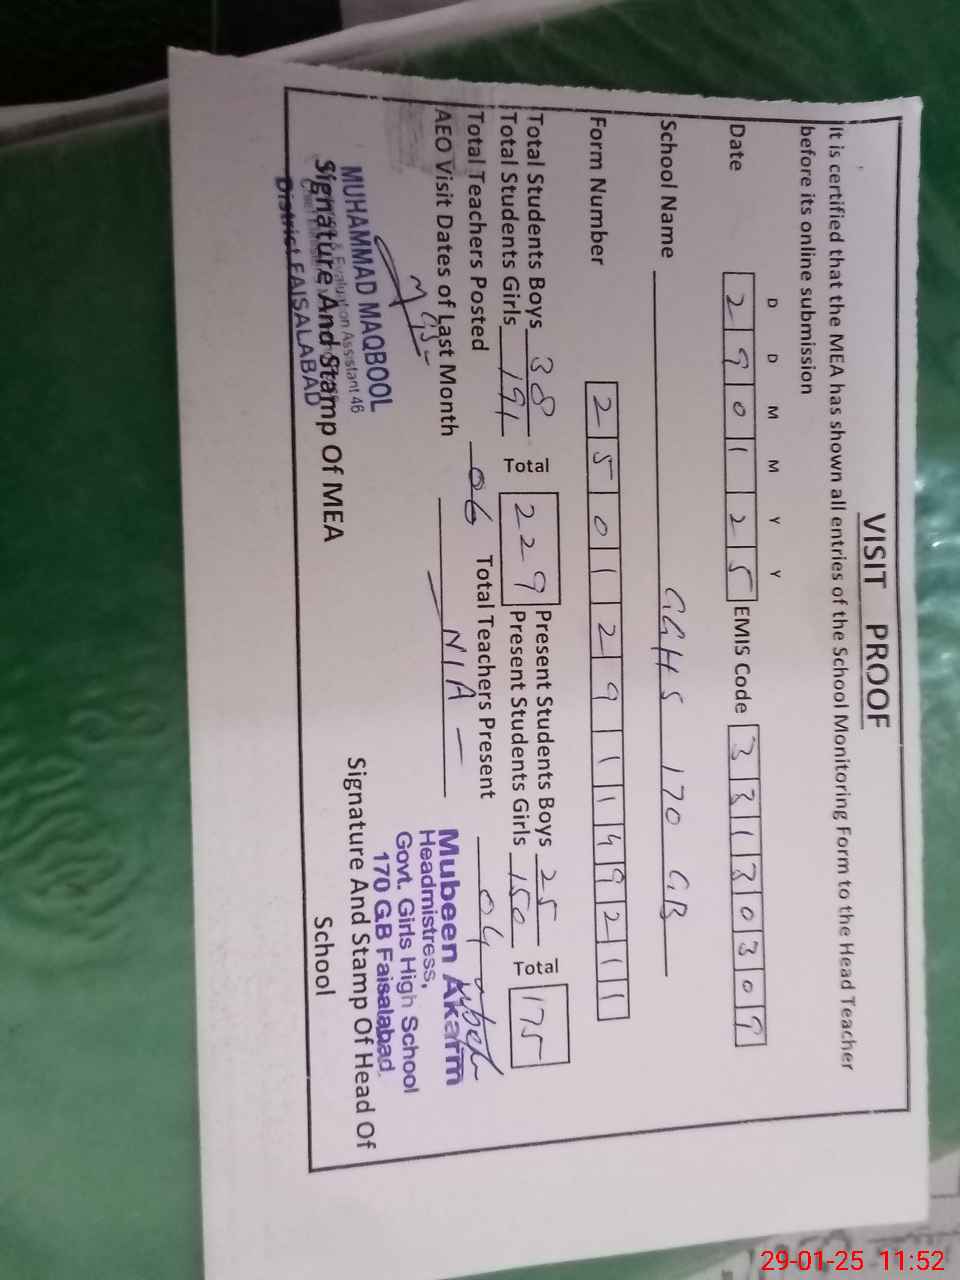 VISIT PROOF
It is certified that the MEA has shown all entries of the School Monitoring Form to the Head Teacher
before its online submission
D D M M Y Y
Date 2 9 0 1 2 5 EMIS Code 3 3 1 3 0 3 0 9
School Name GGHS 170 GB
Form Number 2 5 0 1 2 9 1 1 4 9 2 1 1
Total Students Boys 38 Present Students Boys 25
Total 229 Total 175
Total Students Girls 191 Present Students Girls 150
Total Teachers Posted 06 Total Teachers Present 04
AEO Visit Dates of Last Month N/A
MUHAMMAD MAQBOOL
& Evaluation Assistant 46
District FAISALABAD
Signature And Stamp Of MEA
Mubeen Akarm
Headmistress,
Govt. Girls High School
170 G.B Faisalabad.
Signature And Stamp Of Head Of
School
29-01-25 11:52